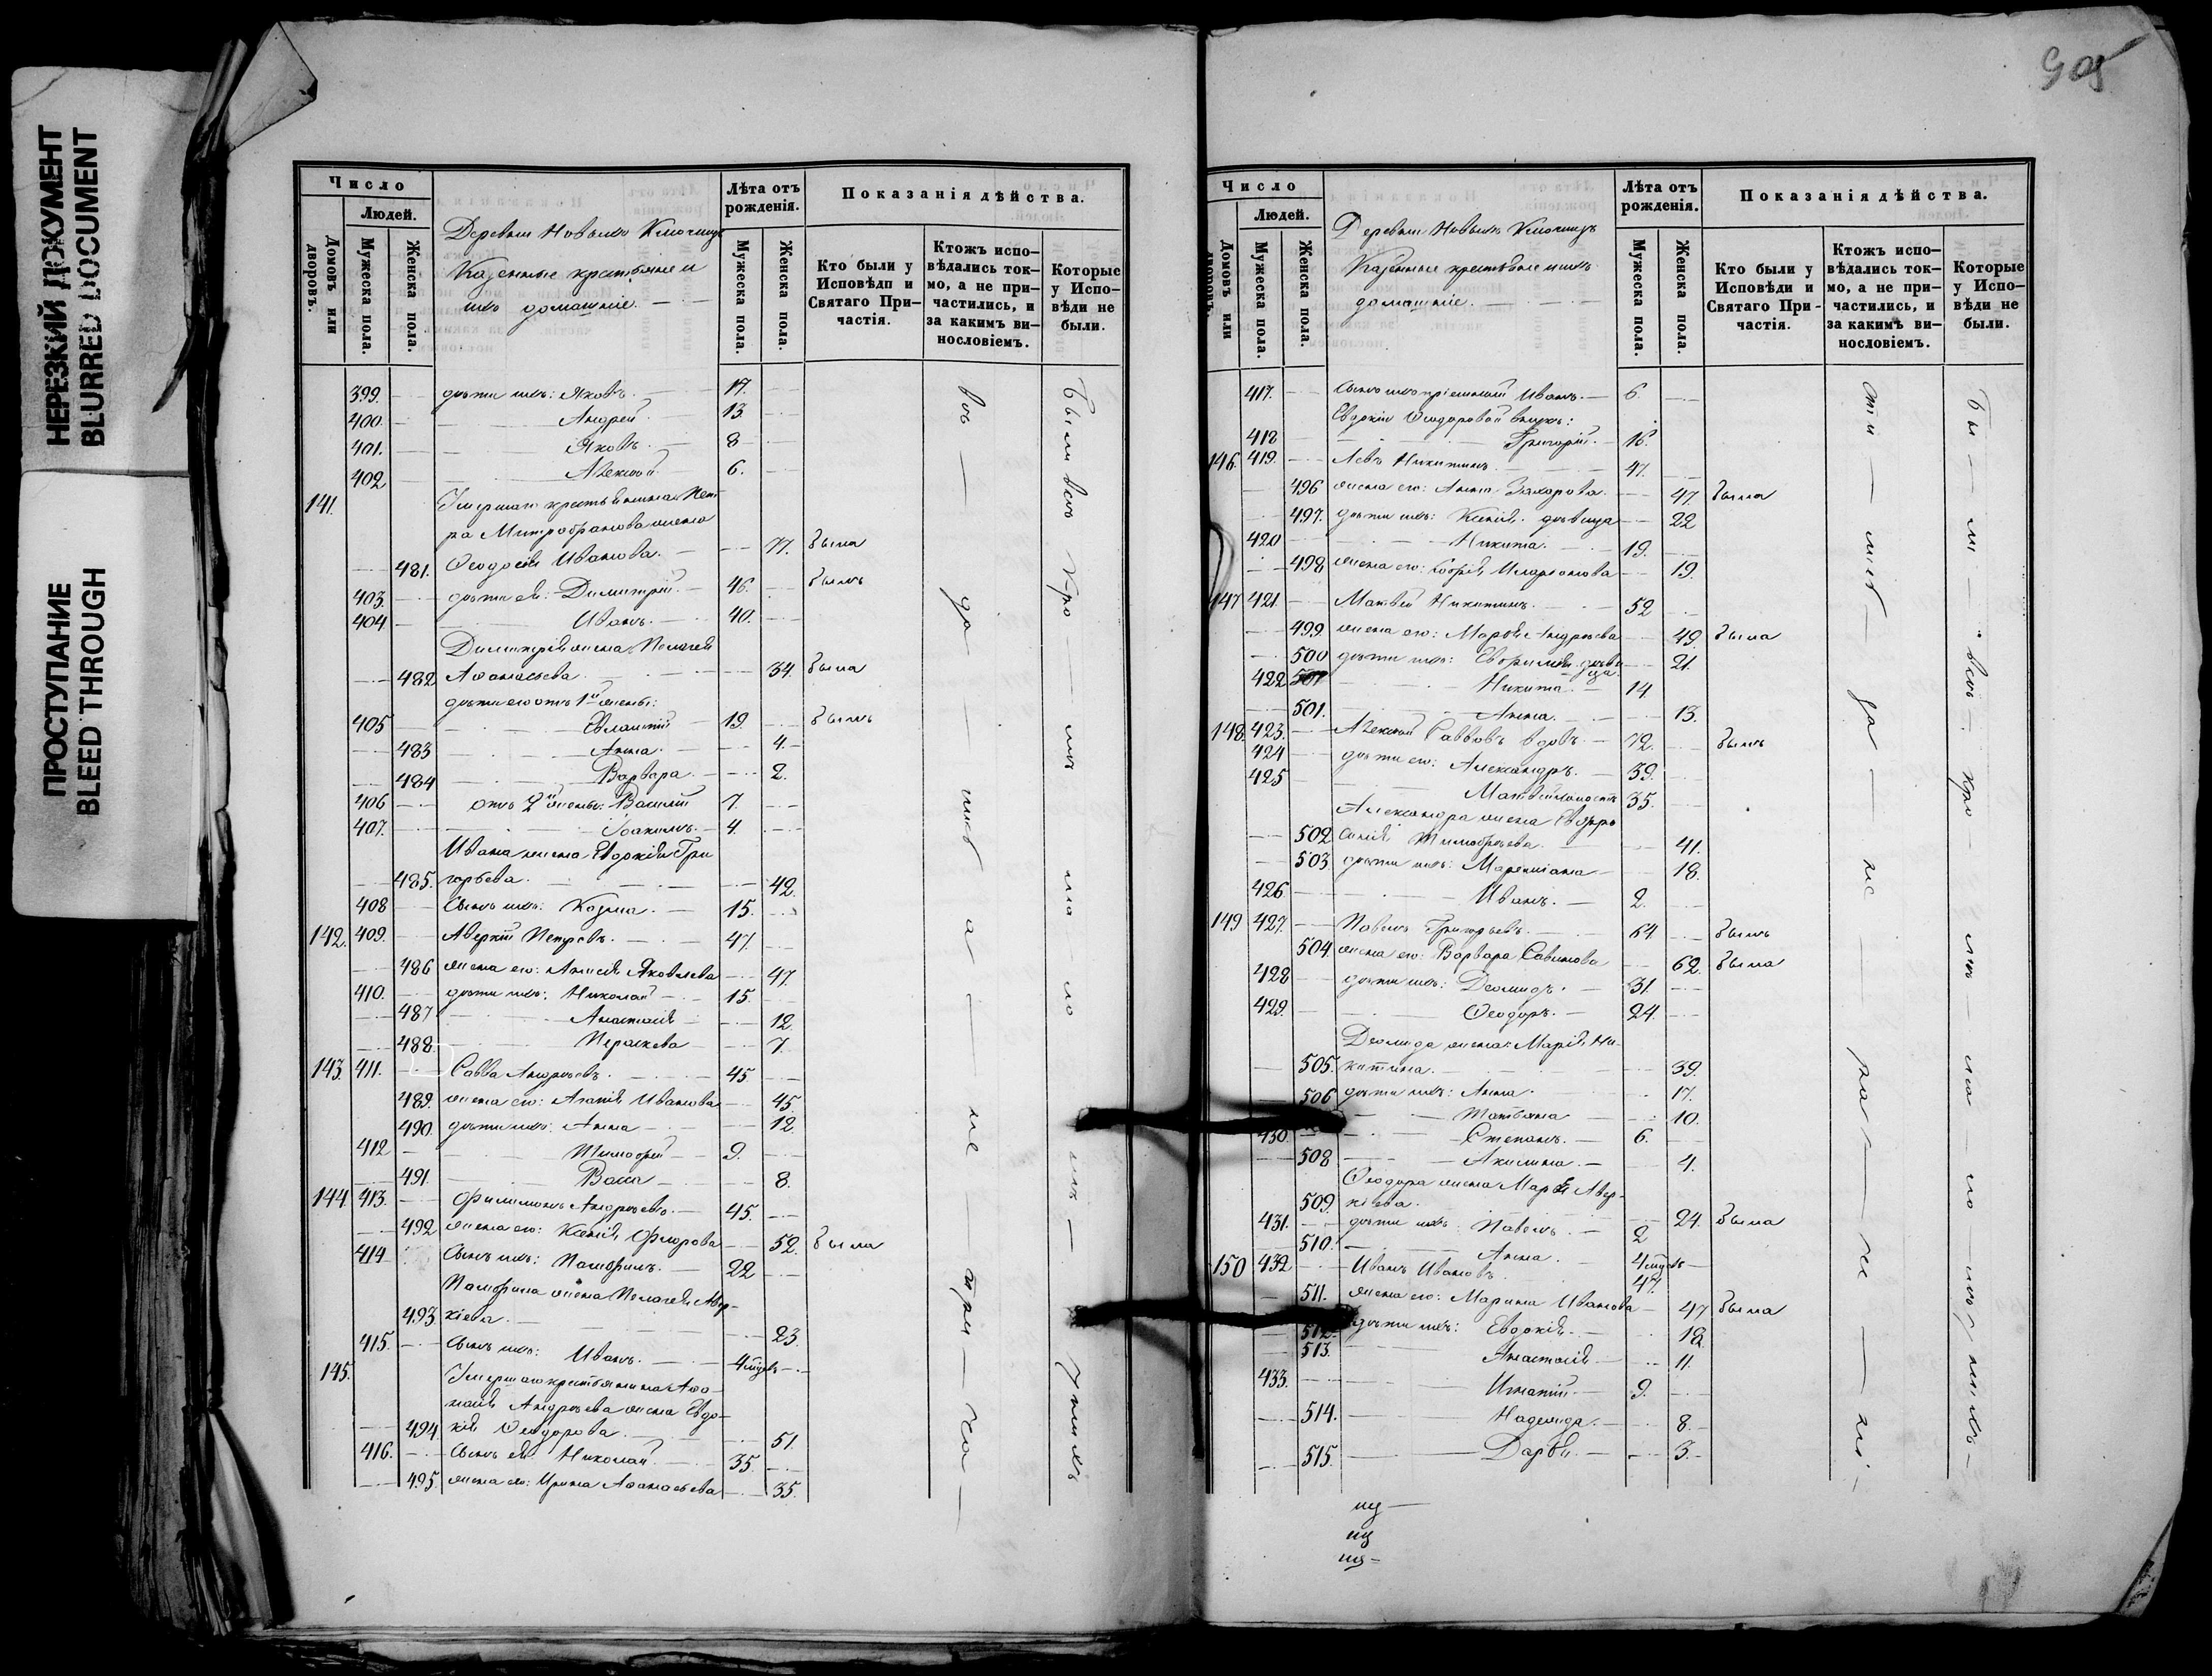 НЕРЕЗКИЙ ДОКУМЕНТ
BLURRED DOCUMENT
ПРОСТУПАНИЕ
BLEED THROUGH
Число
Людей.
Домовъ или дворовъ.
Мужеска пола.
Женска пола.
Деревни Новыхъ Ключищъ
Казенные крестьяне и
ихъ домашніе.
Лѣта отъ рожденія.
Мужеска пола.
Женска пола.
Показанія дѣйства.
Кто были у Исповѣди и Святаго Причастія.
Ктожъ исповѣдались токмо, а не причастились, и за какимъ винословіемъ.
Которые у Исповѣди не были.
399. дѣти ихъ: Яковъ. 17.
400. Андрей 13
401. Яковъ. 8
402 Алексѣй 6.
141. Умершаго крестьянина Пет-
ра Митрофанова жена
481. Ѳеодосія Иванова. 77. была
403. дѣти ея: Димитрій. 46. былъ
404 Иванъ. 40.
Димитрія жена Пелагея
482 Аѳанасьева 34. была
дѣти его отъ 1й жены:
405 Евлампій 19. былъ
483 Анна. 4.
484 Варвара. 2.
406 отъ 2й жены: Василій 7.
407. Іоакимъ. 4.
Ивана жена Евдокія Гри
485. горьева. 42.
408 Сынъ ихъ: Козма. 15.
142. 409. Аверкій Петровъ. 47
486 жена его: Анисія Яковлева 47.
410. дѣти ихъ: Николай 15.
487 Анастасія 12.
488. Параскева 7
143. 411. Савва Андреевъ. 45.
489. жена его: Агапія Иванова 45.
490. дѣти ихъ: Анна 12.
412 Тимофей 9.
491. Васса 8.
144. 413. Филимонъ Андреевъ. 45.
492 жена его: Ксенія Фролова 52. была
414 Сынъ ихъ: Памфилъ. 22
Памфила жена Пелагея Авер-
493. кіева. 23
415. Сынъ ихъ: Иванъ. 4 мцвъ
145. Умершаго крестьянина Аѳа-
насія Андреева жена Евдо-
494 кія Ѳеодорова. 51.
416. Сынъ ея Николай 35
495. жена его: Ирина Аѳанасьева 35.
Были всѣ кро
905
Число
Людей.
Домовъ или дворовъ.
Мужеска пола.
Женска пола.
Деревни Новыхъ Ключищъ
Казенные крестьяне и ихъ
домашніе.
Лѣта отъ рожденія.
Мужеска пола.
Женска пола.
Показанія дѣйства.
Кто были у Исповѣди и Святаго Причастія.
Ктожъ исповѣдались токмо, а не причастились, и за какимъ винословіемъ.
Которые у Исповѣди не были.
417. Сынъ ихъ пріемный Иванъ. 6.
Евдокіи Ѳеодоровой внукъ:
418 Григорій. 16.
146. 419. Левъ Никитинъ. 47.
496 жена его: Анна Захарова. 47. была
497. дѣти ихъ: Ксенія дѣвица 22
420 Никита. 19.
498 жена его: Софія Иларіонова 19.
147 421. Матвей Никитинъ. 52
499. жена его: Марѳа Андреева 49. была
500 дѣти ихъ: Евфимія дѣви
ца. 21.
422 Никита. 14
501. Анна. 13.
148. 423. Алексѣй Саввовъ вдовъ. 72. былъ
424 дѣти его: Александръ. 39.
425 Матвей холостъ 35.
Александра жена Евфро
502 синія Тимофеева. 41.
503. дѣти ихъ: Маркиана 18.
426 Иванъ. 2.
149 427. Павелъ Григорьевъ. 64 былъ
504. жена его: Варвара Савинова 62. была
428 дѣти ихъ: Деомидъ. 31.
429. Ѳеодоръ. 24.
Деомида жена: Марія Ни-
505. китина. 39.
506 дѣти ихъ: Анна 17.
Татьяна 10.
430. Стефанъ. 6.
508 Акилина. 4.
Ѳеодора жена Марья Авер-
509. кіева. 24. была
431. дѣти ихъ: Павелъ. 2
510. Анна. 4 мцвъ
150 432 Иванъ Ивановъ. 47.
511. жена его: Марина Иванова 47 была
512. дѣти ихъ: Евдокія. 18
513. Анастасія 11.
433. Игнатій. 9.
514. Надежда. 8.
515. Дарья. 3.
Бы ли всѣ кро